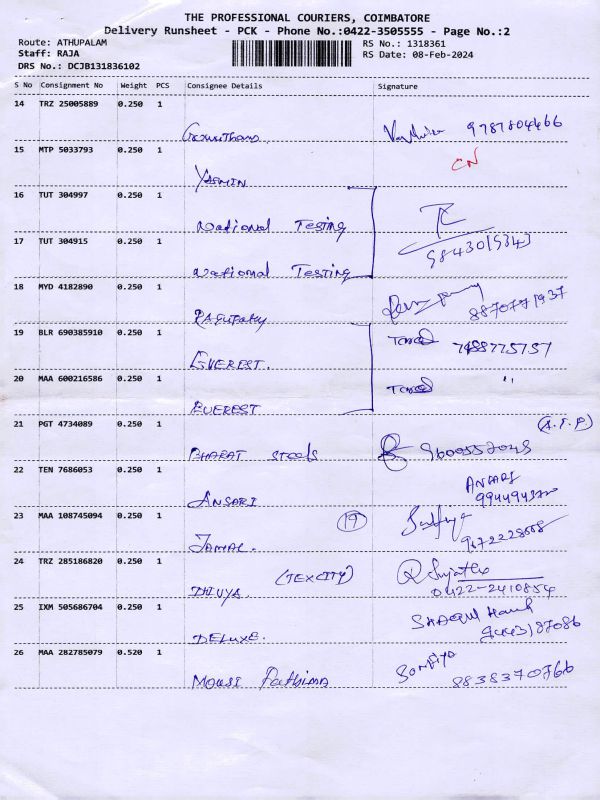 THE PROFESSIONAL COURIERS, COIMBATORE
Delivery Runsheet - PCK - Phone No.:0422-3505555 - Page No.:2
Route: ATHUPALAM
RS No.: 1318361
Staff: RAJA
RS Date: 08-Feb-2024
DRS No.: DCJB131836102
S No Consignment No Weight PCS Consignee Details Signature
14 TRZ 25005889 0.250 1
9787804466
15 MTP 5033793 0.250 1
CN
YASMIN
16 TUT 304997 0.250 1
National Testing
17 TUT 304915 0.250 1
National Testing
18 MYD 4182890 0.250 1
8870771937
RAGUPATHY
19 BLR 690385910 0.250 1
EVEREST.
20 MAA 600216586 0.250 1
"
EVEREST
21 PGT 4734089 0.250 1
BHARAT Steels
22 TEN 7686053 0.250 1
ANSARI
ANSARI
23 MAA 108745094 0.250 1
19
JAMAL.
24 TRZ 285186820 0.250 1
(TEXCITY)
DHIVYA
0422-2410854
25 IXM 505686704 0.250 1
DELUXE.
26 MAA 282785079 0.520 1
Fathima
8838370766